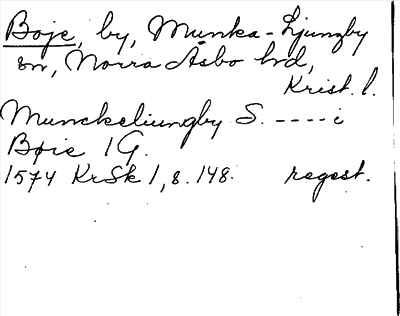 Boje, by, Munka-Ljungby
sn, Norra Åsbo hd,
Krist. l.
Munckeliungby S. ---- i
Bøie 1 G.
1574 KrSk 1, s. 148. regest.